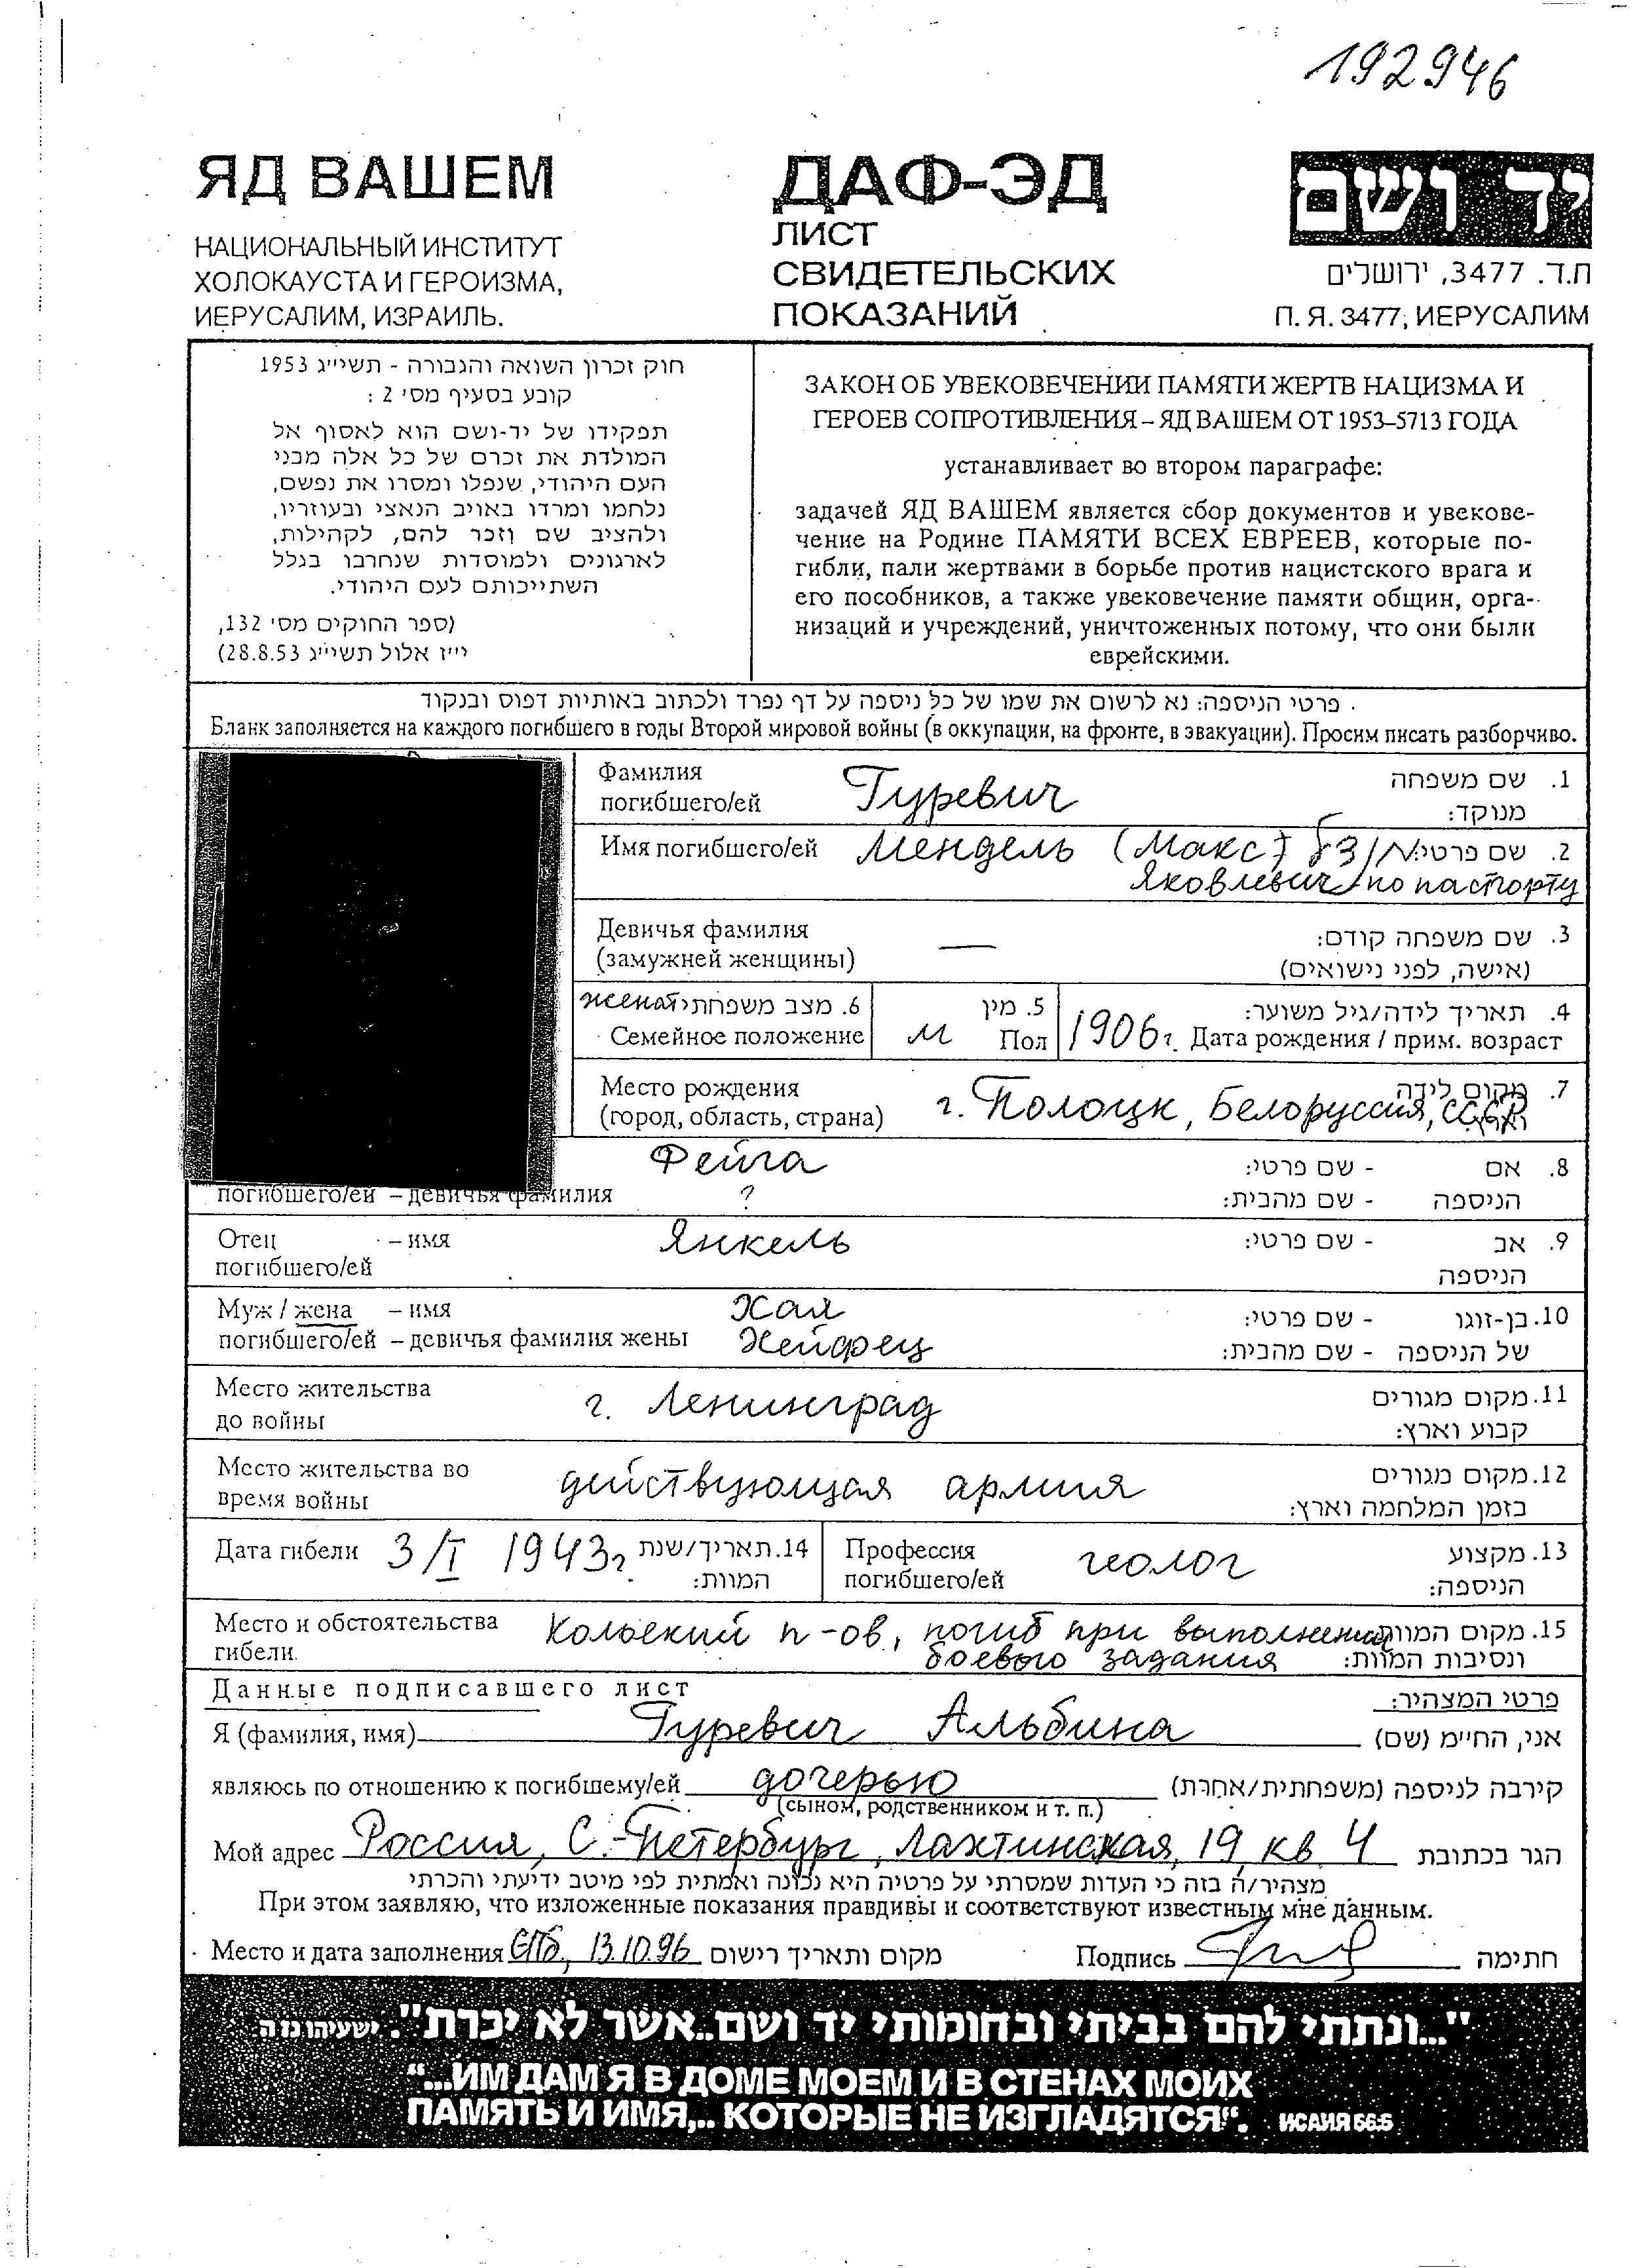 192946
ЯД ВАШЕМ
НАЦИОНАЛЬНЫЙ ИНСТИТУТ
ХОЛОКАУСТА И ГЕРОИЗМА,
ИЕРУСАЛИМ, ИЗРАИЛЬ.
ДАФ-ЭД
ЛИСТ
СВИДЕТЕЛЬСКИХ
ПОКАЗАНИЙ
יד ושם
ת.ד. 3477, ירושלים
П. Я. 3477, ИЕРУСАЛИМ
חוק זכרון השואה והגבורה - תשי״ג 1953
קובע בסעיף מס׳ 2 :
תפקידו של יד-ושם הוא לאסוף אל
המולדת את זכרם של כל אלה מבני
העם היהודי, שנפלו ומסרו את נפשם,
נלחמו ומרדו באויב הנאצי ובעוזריו,
ולהציב שם וזכר להם, לקהילות,
לארגונים ולמוסדות שנחרבו בגלל
השתייכותם לעם היהודי.
(ספר החוקים מס׳ 132,
י״ז אלול תשי״ג 28.8.53)
ЗАКОН ОБ УВЕКОВЕЧЕНИИ ПАМЯТИ ЖЕРТВ НАЦИЗМА И
ГЕРОЕВ СОПРОТИВЛЕНИЯ – ЯД ВАШЕМ ОТ 1953–5713 ГОДА
устанавливает во втором параграфе:
задачей ЯД ВАШЕМ является сбор документов и увекове-
чение на Родине ПАМЯТИ ВСЕХ ЕВРЕЕВ, которые по-
гибли, пали жертвами в борьбе против нацистского врага и
его пособников, а также увековечение памяти общин, орга-
низаций и учреждений, уничтоженных потому, что они были
еврейскими.
פרטי הניספה: נא לרשום את שמו של כל ניספה על דף נפרד ולכתוב באותיות דפוס ובנקוד
Бланк заполняется на каждого погибшего в годы Второй мировой войны (в оккупации, на фронте, в эвакуации). Просим писать разборчиво.
Фамилия Гуревич 1. שם משפחה
погибшего/ей מנוקד:
Имя погибшего/ей Мендель (Макс) 2. שם פרטי:
Яковлевич по паспорту
Девичья фамилия — 3. שם משפחה קודם:
(замужней женщины) (אישה, לפני נישואים)
женат 6. מצב משפחתי 5. מין 4. תאריך לידה/גיל משוער:
Семейное положение м Пол 1906 г. Дата рождения / прим. возраст
Место рождения 7. מקום לידה
(город, область, страна) г. Полоцк, Белоруссия, СССР
Фейга 8. אם - שם פרטי:
погибшего/ей – девичья фамилия ? הניספה - שם מהבית:
Отец – имя Янкель 9. אב - שם פרטי:
погибшего/ей הניספה
Муж / жена – имя Хая 10. בן-זוגו - שם פרטי:
погибшего/ей – девичья фамилия жены Хейфец של הניספה - שם מהבית:
Место жительства г. Ленинград 11. מקום מגורים
до войны קבוע וארץ:
Место жительства во действующая армия 12. מקום מגורים
время войны בזמן המלחמה וארץ:
Дата гибели 3/I 1943 г 14. תאריך/שנת המוות:
Профессия погибшего/ей геолог 13. מקצוע הניספה:
Место и обстоятельства Кольский п-ов, погиб при выполнении 15. מקום המוות
гибели боевого задания ונסיבות המוות:
Данные подписавшего лист פרטי המצהיר:
Я (фамилия, имя) Гуревич Альбина אני, החי״מ (שם)
являюсь по отношению к погибшему/ей дочерью קירבה לניספה (משפחתית/אחרת)
(сыном, родственником и т. п.)
Мой адрес Россия, С.-Петербург, Лахтинская, 19, кв 4 הגר בכתובת
מצהיר/ה בזה כי העדות שמסרתי על פרטיה היא נכונה ואמתית לפי מיטב ידיעתי והכרתי
При этом заявляю, что изложенные показания правдивы и соответствуют известным мне данным.
Место и дата заполнения СПб, 13.10.96 מקום ותאריך רישום Подпись חתימה
"...ונתתי להם בביתי ובחומותי יד ושם..אשר לא יכרת". ישעיהו נו ה
“...ИМ ДАМ Я В ДОМЕ МОЕМ И В СТЕНАХ МОИХ
ПАМЯТЬ И ИМЯ,.. КОТОРЫЕ НЕ ИЗГЛАДЯТСЯ“. ИСАИЯ 56:5